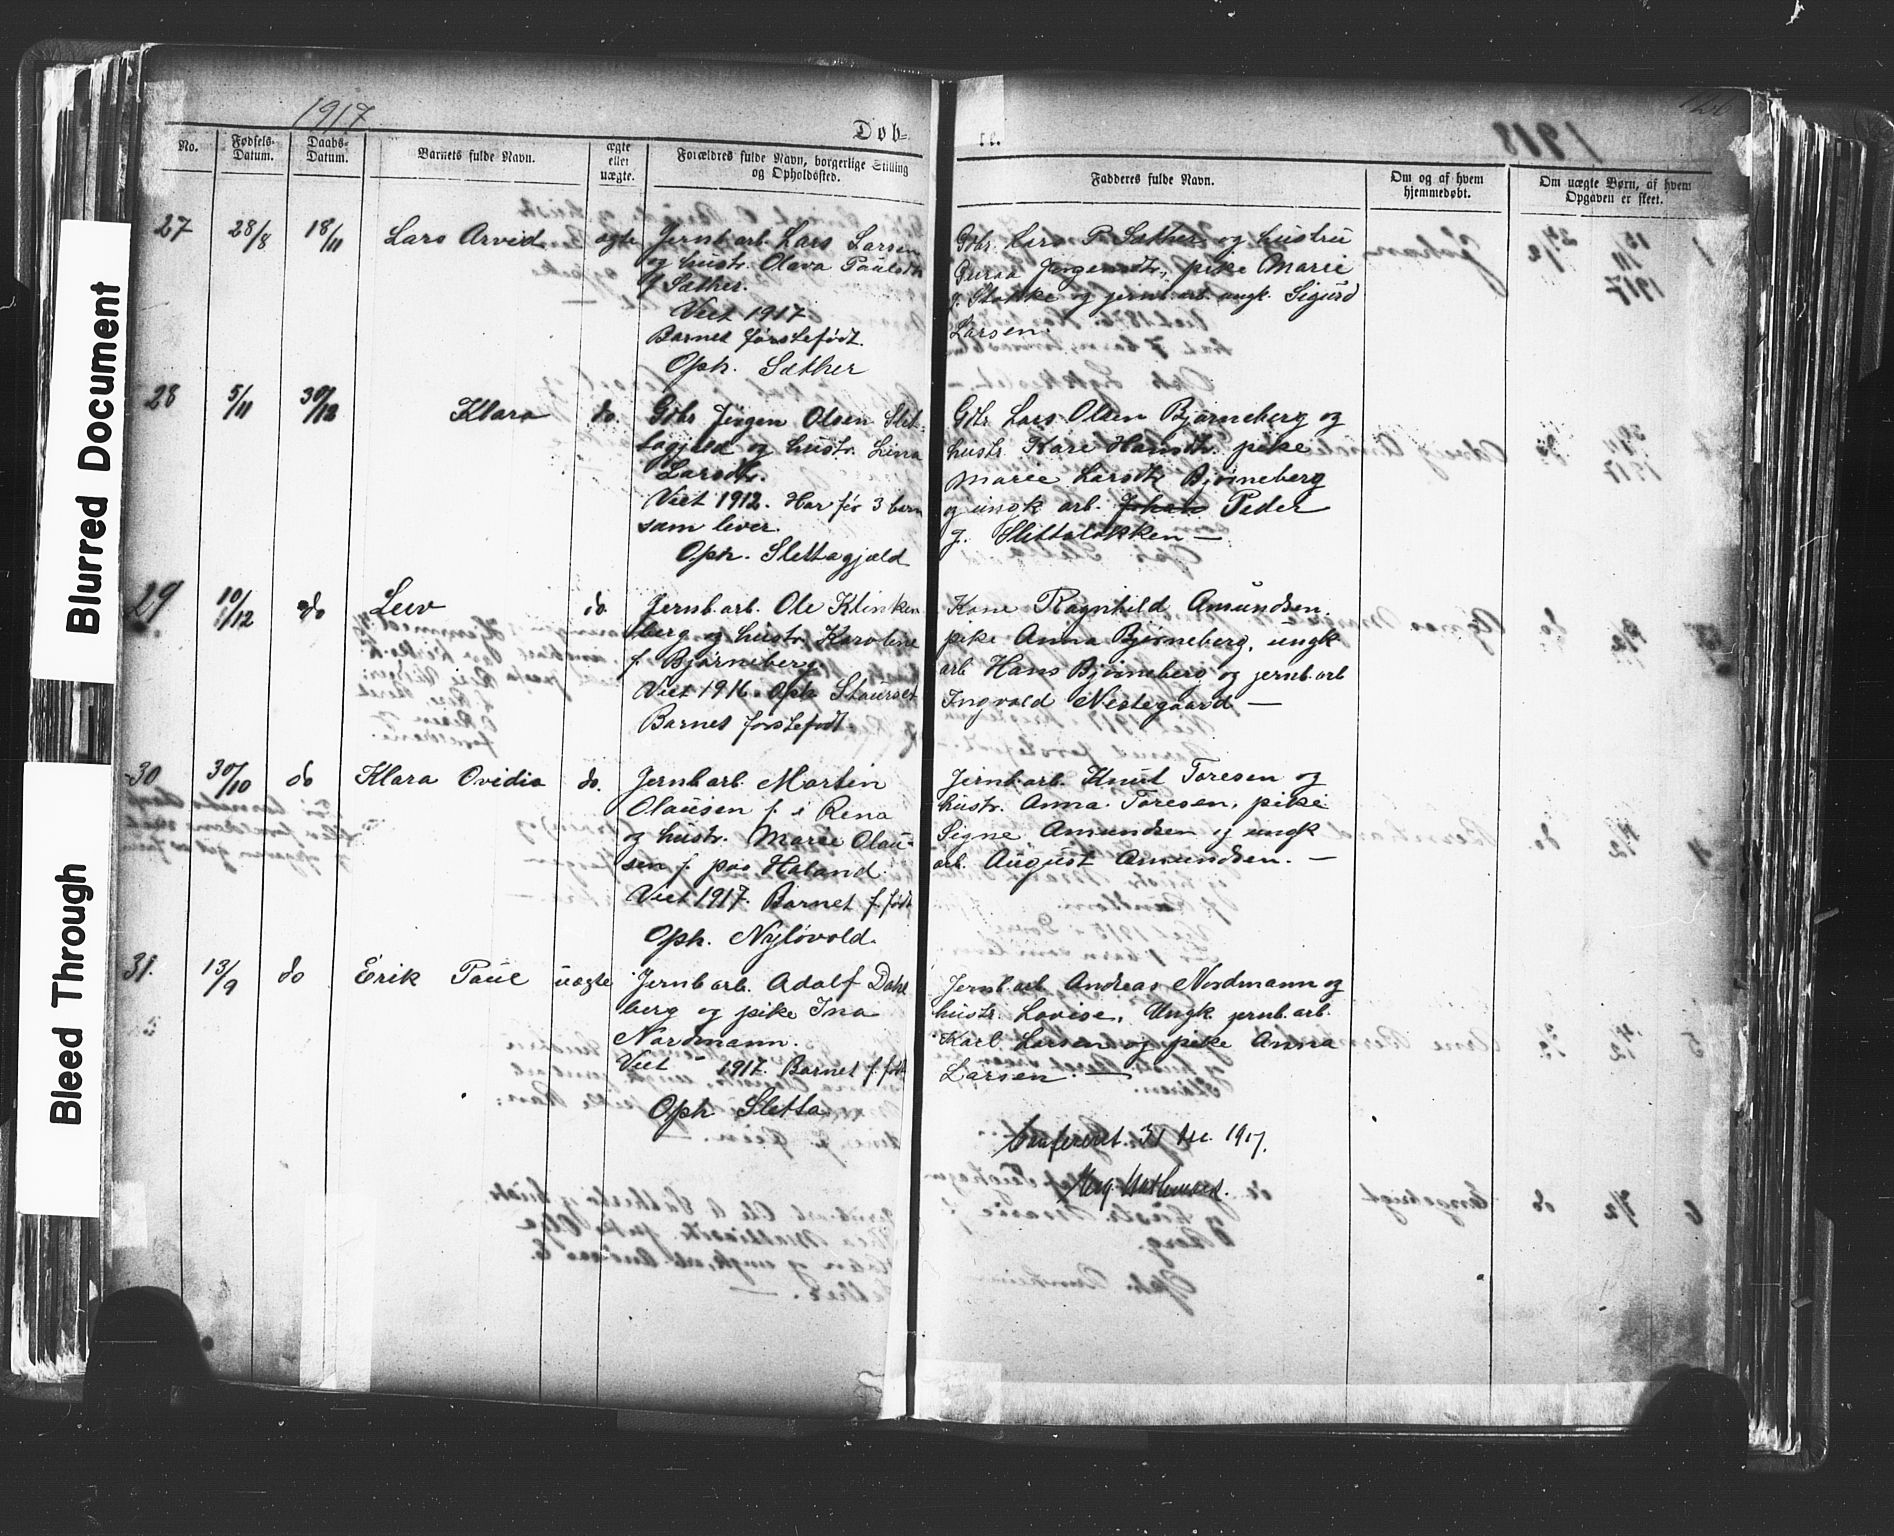 1917
Døb-
No.
Fødsels-
Datum.
Daabs-
Datum.
Barnets fulde Navn.
ægte
eller
uægte.
Forældres fulde Navn, borgerlige Stilling
og Opholdssted.
Fadderes fulde Navn.
Om og af hvem
hjemmedøbt.
Om uægte Børn, af hvem
Opgaven er skeet.
27 28/8 18/11 Lars Arvid ægte
Jernb.arb. Lars Larsen
og hustr. Olava Paulsdtr
f. Sæther.
Viet 1917
Barnet førstefødt.
Oph. Sæther
Gbr. Lars P. Sæther og hustru
Guraa Jørgensdtr., pike Marie
g. Stokke og jernb.arb. ungk. Sigurd
Larsen.
28 5/11 30/12 Klara do.
Gbr Jørgen Olsen Slet-
tagjeld og hustr. Lina
Larsdtr.
Viet 1912. Har før 3 barn
som lever.
Oph. Slettagjæld
Gbr Lars Olsen Bjørneberg og
hustr. Kari Hansdtr. pike
Marie Larsdtr Bjørneberg
og ungk arb. Johan Peder
g. Slettaløkken —
29 10/12 do Leiv do.
Jernb.arb. Ole Klinken
berg og hustr. Karoline
f. Bjørneberg.
Viet 1916. Oph Stavrset
Barnet førstefødt.
Kone Ragnhild Amundsen.
pike Anna Bjørneberg, ungk
arb Hans Bjørneberg og jernb.arb
Ingvald Nestegaard —
30 30/10 do Klara Ovidia do.
Jernb.arb. Martin
Olausen f. i Rena
og hustr. Marie Olau-
sen f. paa Haland.
Viet 1917. Barnet f. født
Oph. Nyløvold.
Jernb.arb. Knut Toresen og
hustr. Anna Toresen, pike
Signe Amundsen og ungk
arb. August Amundsen. —
31. 13/9 do Erik Paul uægte
Jernb.arb. Adolf Dahl
berg og pike Ina
Nordmann.
Viet — 1917. Barnet f. født
Oph Sletta
Jernb.arb Andreas Nordmann og
hustr. Lovise. Ungk jernb.arb.
Karl Larsen og pike Anna
Larsen. —
Confereret. 31 Dec. 1917.
Blurred Document
Bleed Through